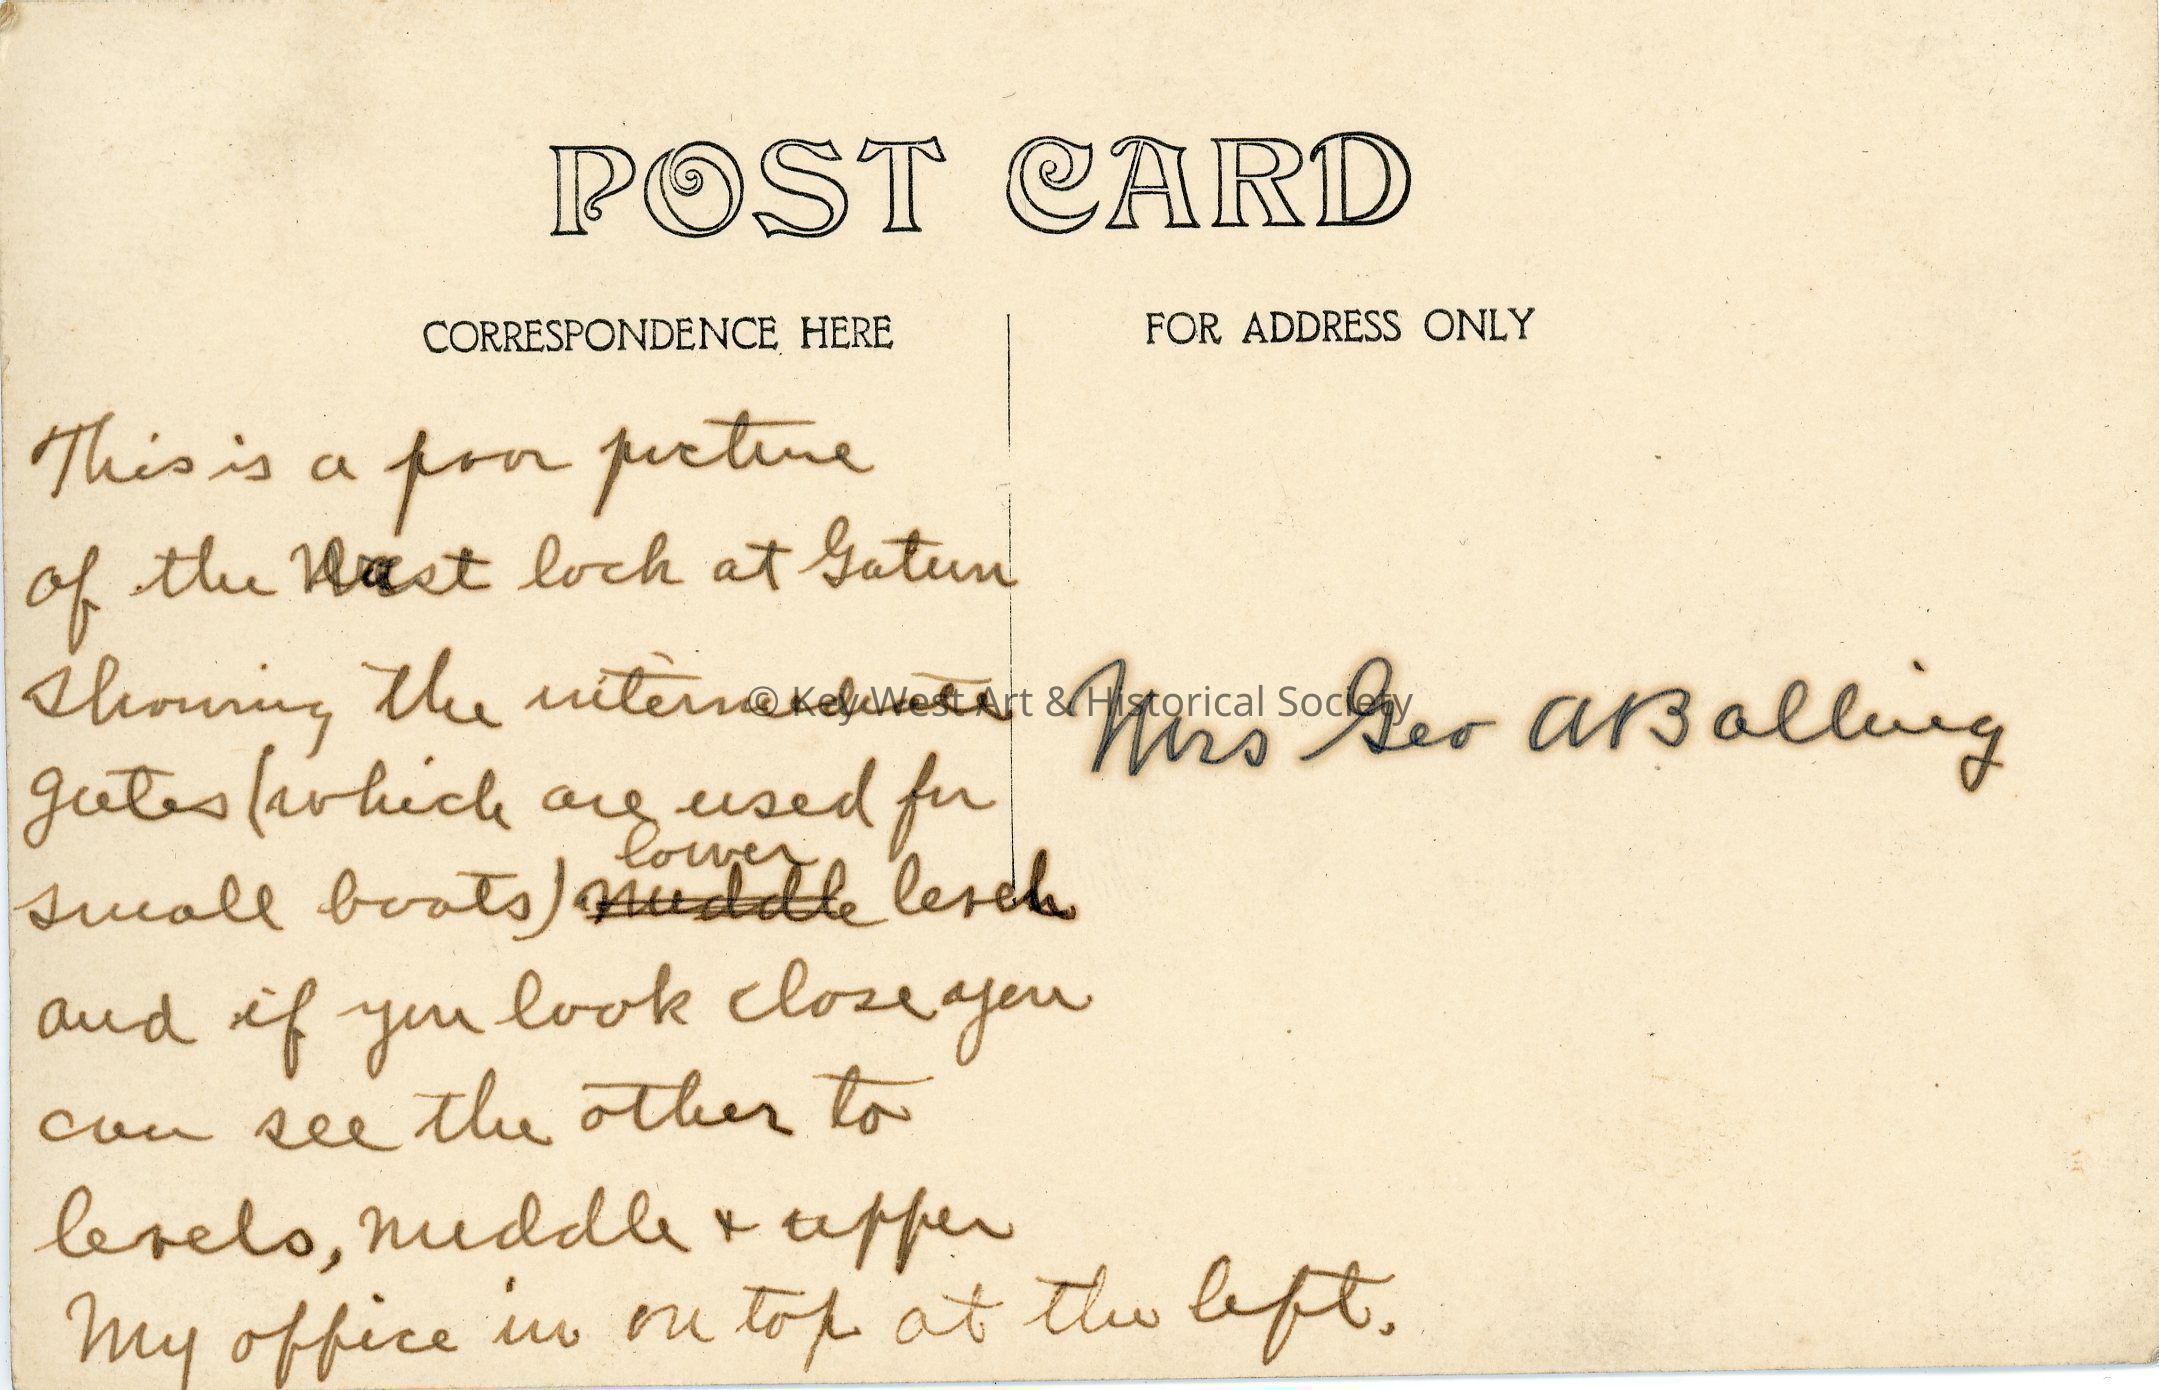 POST CARD
CORRESPONDENCE HERE
FOR ADDRESS ONLY
This is a poor picture
of the West lock at Gatun
showing the intermediate
gates (which are used for
small boats) lower Middle level
and if you look close you
can see the other to
levels, middle + upper
My office in on top at the left.
Mrs Geo A Bolling
© Key West Art & Historical Society